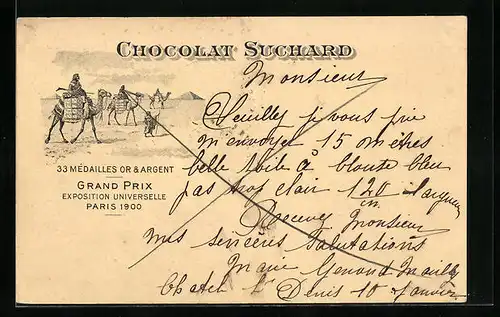 CHOCOLAT SUCHARD
33 MÉDAILLES OR & ARGENT
GRAND PRIX
EXPOSITION UNIVERSELLE
PARIS 1900
Monsieur
Veuillez je vous prie
m'envoyer 15 mètres
belle toile à blouse bleu
pas trop clair 120 largeur
Recevez Monsieur
mes sincères Salutations
Marie Genoud
Châtel St Denis 10 Janvier